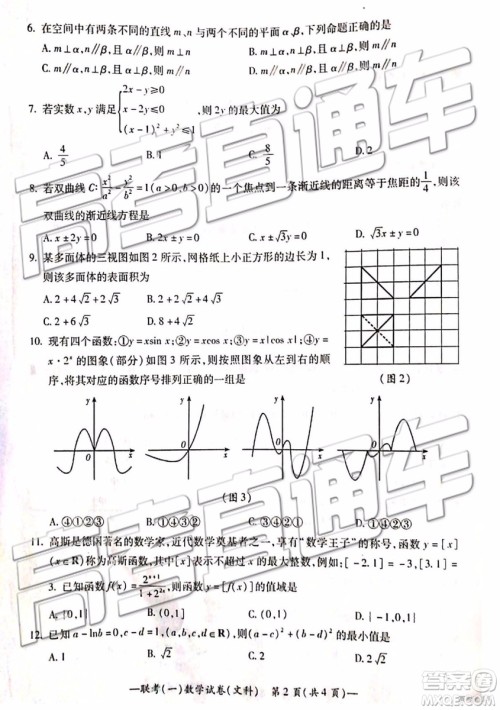 6. 在空间中有两条不同的直线 m、n 与两个不同的平面 α、β,下列命题正确的是
A. m⊥α,n∥β,且 α∥β,则 m⊥n B. m⊥α,n⊥β,且 α⊥β,则 m∥n
C. m∥α,n⊥β,且 α⊥β,则 m∥n D. m∥α,n∥β,且 α∥β,则 m∥n
7. 若实数 x,y 满足 {2x-y≥0 x-2y≤0 x-1≤0,则 2y-x 的最大值为
A. 4/5 B. 1 C. 8/5 D. 2
8. 若双曲线 C: x²/a² - y²/b² = 1(a>0,b>0)的一个焦点到一条渐近线的距离等于焦距的 1/4,则该
双曲线的渐近线方程是
A. x±2y=0 B. 2x±y=0 C. x±√3y=0 D. √3x±y=0
9. 某多面体的三视图如图 2 所示,网格纸上小正方形的边长为 1,
则该多面体的表面积为
A. 2+4√2+2√3 B. 2+4√3
C. 2+6√3 D. 8+4√2
10. 现有四个函数:①y=xsin x;②y=xcos x;③y=x|cos x|;④y=
x·2ˣ 的图象(部分)如图 3 所示,则按照图象从左到右的顺
序,将其对应的函数序号排列正确的一组是
(图 2)
y 0 x y 0 x y 0 x y 0 x
(图 3)
A. ④①②③ B. ①④③② C. ③④②① D. ①④②③
11. 高斯是德国著名的数学家,近代数学奠基者之一,享有“数学王子”的称号,函数 y=[x]
称为高斯函数,其中[x]表示不超过实数 x 的最大整数,如[-2.1]=-3,[3.1]=
3. 已知函数 f(x)=2ˣ⁺¹/(1+2²ˣ),则函数 y=[f(x)]的值域是
A. {0,1} B. (0,1] C. (0,1) D. {-1,0,1}
12. 已知 a-lnb=0,c-d=1,则(a-c)²+(b-d)² 的最小值是
A. 1 B. √2 C. 2 D. 2√2
—联考(一)数学试卷(文科) 第 2 页(共 4 页)—
高考直通车
高考直通车